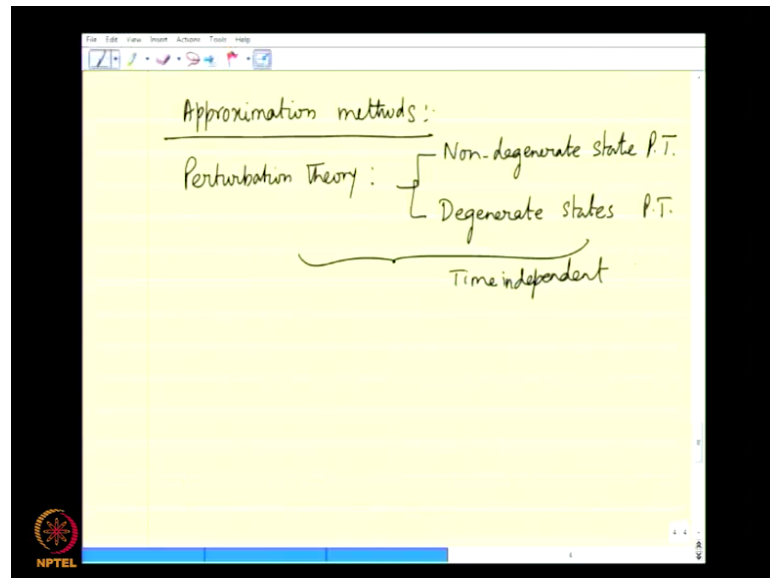 File Edit View Insert Actions Tools Help
Approximation methods:
Perturbation Theory : Non-degenerate state P.T.
Degenerate states P.T.
Time independent
NPTEL